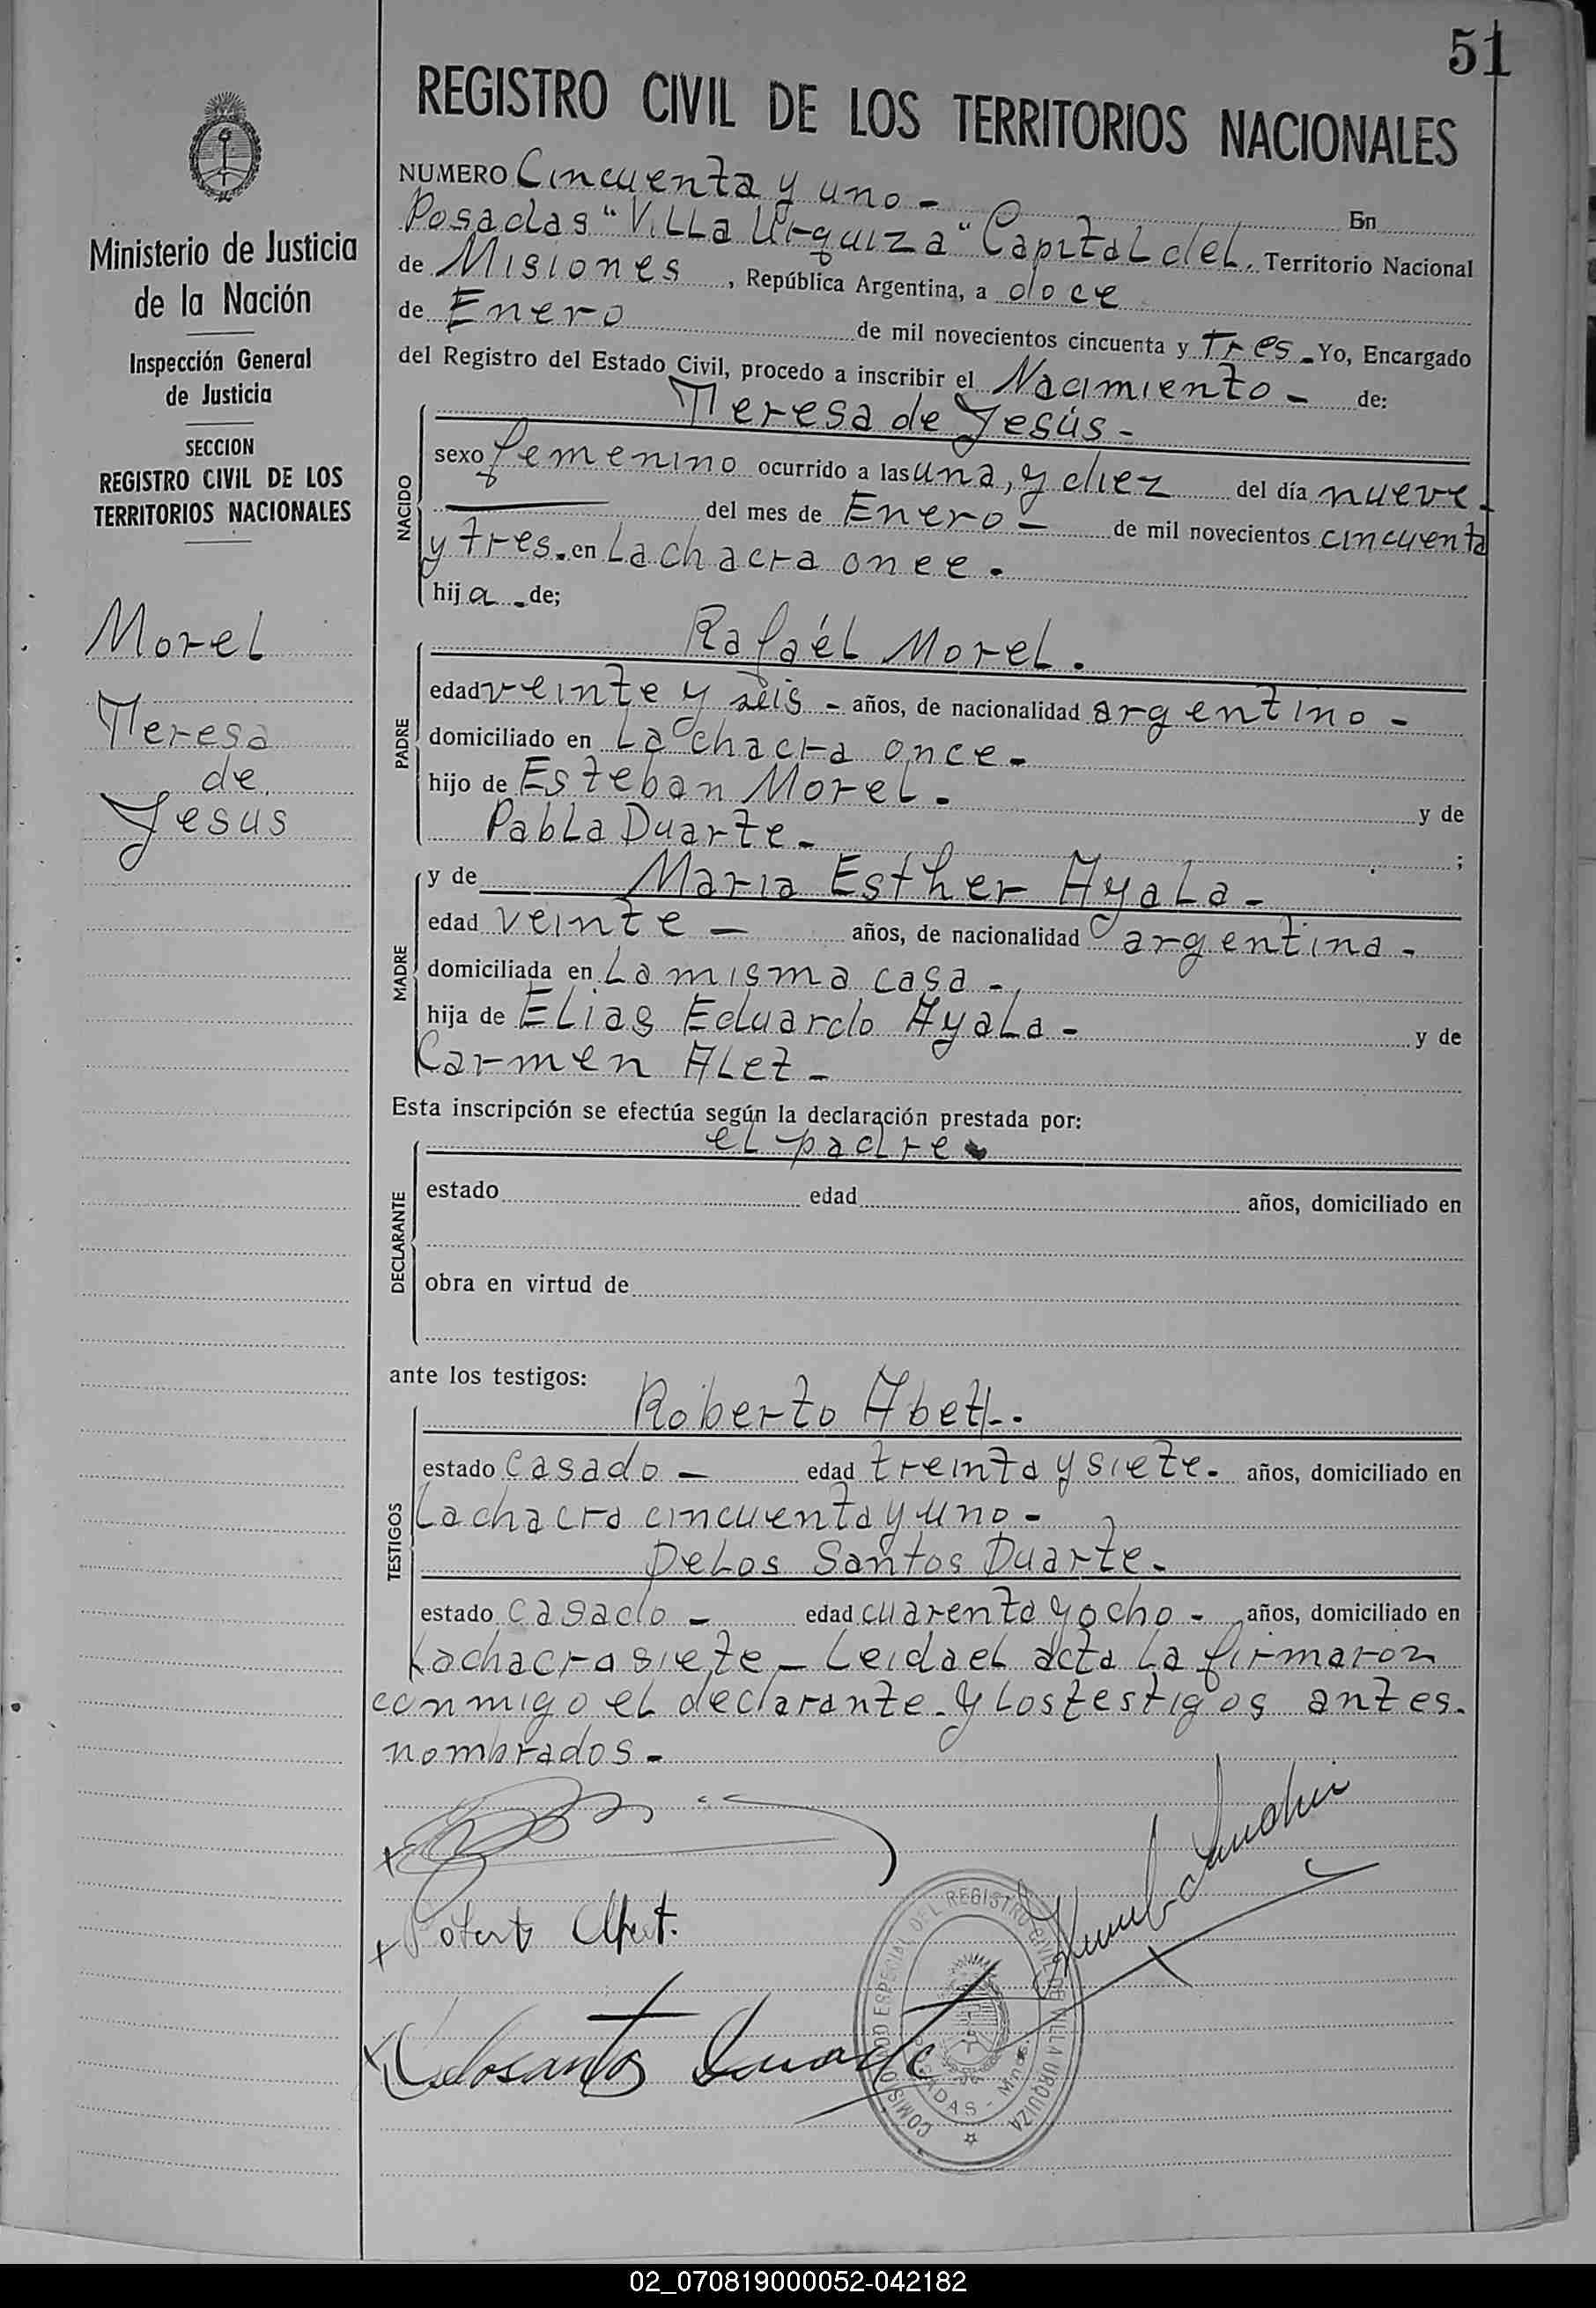 51
REGISTRO CIVIL DE LOS TERRITORIOS NACIONALES
Ministerio de Justicia
de la Nación
Inspección General
de Justicia
SECCION
REGISTRO CIVIL DE LOS
TERRITORIOS NACIONALES
Morel
Teresa
de
Jesus
NUMERO Cincuenta y uno - En
Posadas "Villa Urquiza" Capital del, Territorio Nacional
de Misiones, República Argentina, a doce
de Enero de mil novecientos cincuenta y tres - Yo, Encargado
del Registro del Estado Civil, procedo a inscribir el Nacimiento - de:
Teresa de Jesús -
NACIDO
sexo femenino ocurrido a las una, y diez del día nueve -
del mes de Enero - de mil novecientos cincuenta
y tres. en La chacra once.
hija - de;
Rafaél Morel.
PADRE
edad veinte y seis - años, de nacionalidad argentino -
domiciliado en La chacra once -
hijo de Esteban Morel. y de
Pabla Duarte - ;
y de Maria Esther Ayala -
MADRE
edad veinte - años, de nacionalidad argentina -
domiciliada en La misma casa -
hija de Elias Eduardo Ayala - y de
Karmen Alez -
Esta inscripción se efectúa según la declaración prestada por:
el padre.
DECLARANTE
estado edad años, domiciliado en
obra en virtud de
ante los testigos:
Roberto
TESTIGOS
estado Casado - edad treinta y siete - años, domiciliado en
La chacra cincuenta y uno -
De Los Santos Duarte -
estado Casado - edad cuarenta y ocho - años, domiciliado en
La chacra siete - Leida el acta La firmaron
conmigo el declarante - y Los testigos antes -
nombrados -
Delosantos Duarte
COMISIONADO ESPECIAL DEL REGISTRO CIVIL DE VILLA URQUIZA
POSADAS - Mnes.
02_070819000052-042182